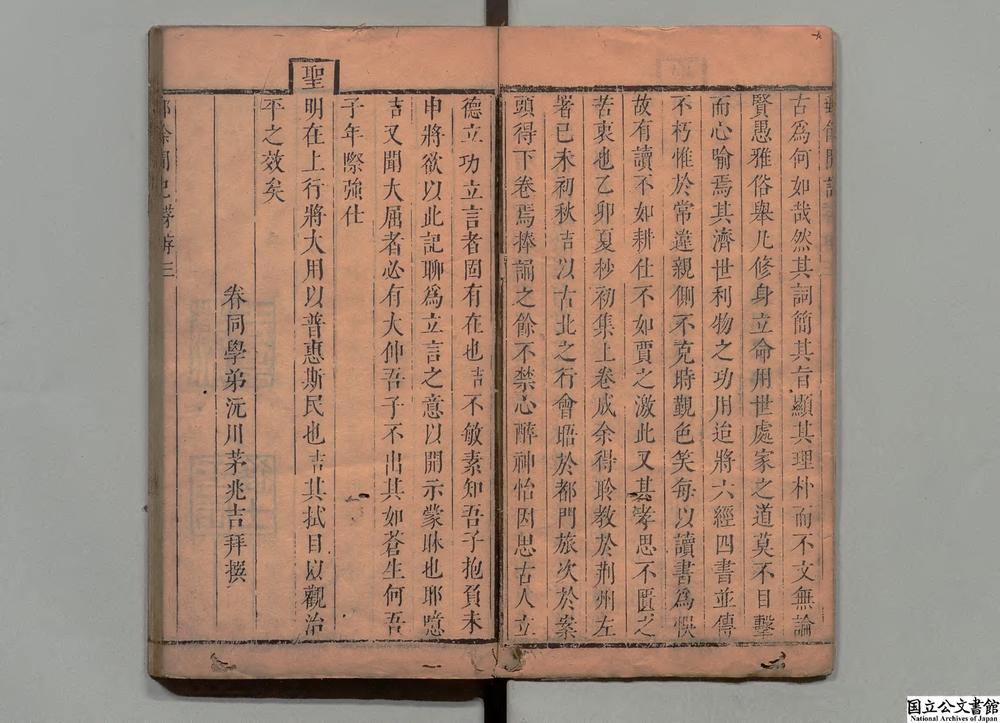 古爲何如哉然其詞簡其旨顯其理朴而不文無論
賢愚雅俗舉凡修身立命用世處家之道莫不目擊
而心喻焉其濟世利物之功用迨將六經四書並傳
不朽惟於常違親側不克時覲色笑每以讀書爲悞
故有讀不如耕仕不如賈之激此又其孝思不匱之
苦衷也乙卯夏杪初集上卷成余得聆教於荆州左
署己未初秋吉以古北之行會晤於都門旅次於案
頭得下卷焉捧誦之餘不禁心醉神怡因思古人立
德立功立言者固有在也吉不敏素知吾子抱負未
申將欲以此記聊爲立言之意以開示蒙昧也耶噫
吉又聞大屈者必有大伸吾子不出其如蒼生何吾
子年際強仕
聖
明在上行將大用以普惠斯民也吉其拭目以觀治
平之效矣
眷同學弟沅川茅兆吉拜撰
国立公文書館
National Archives of Japan